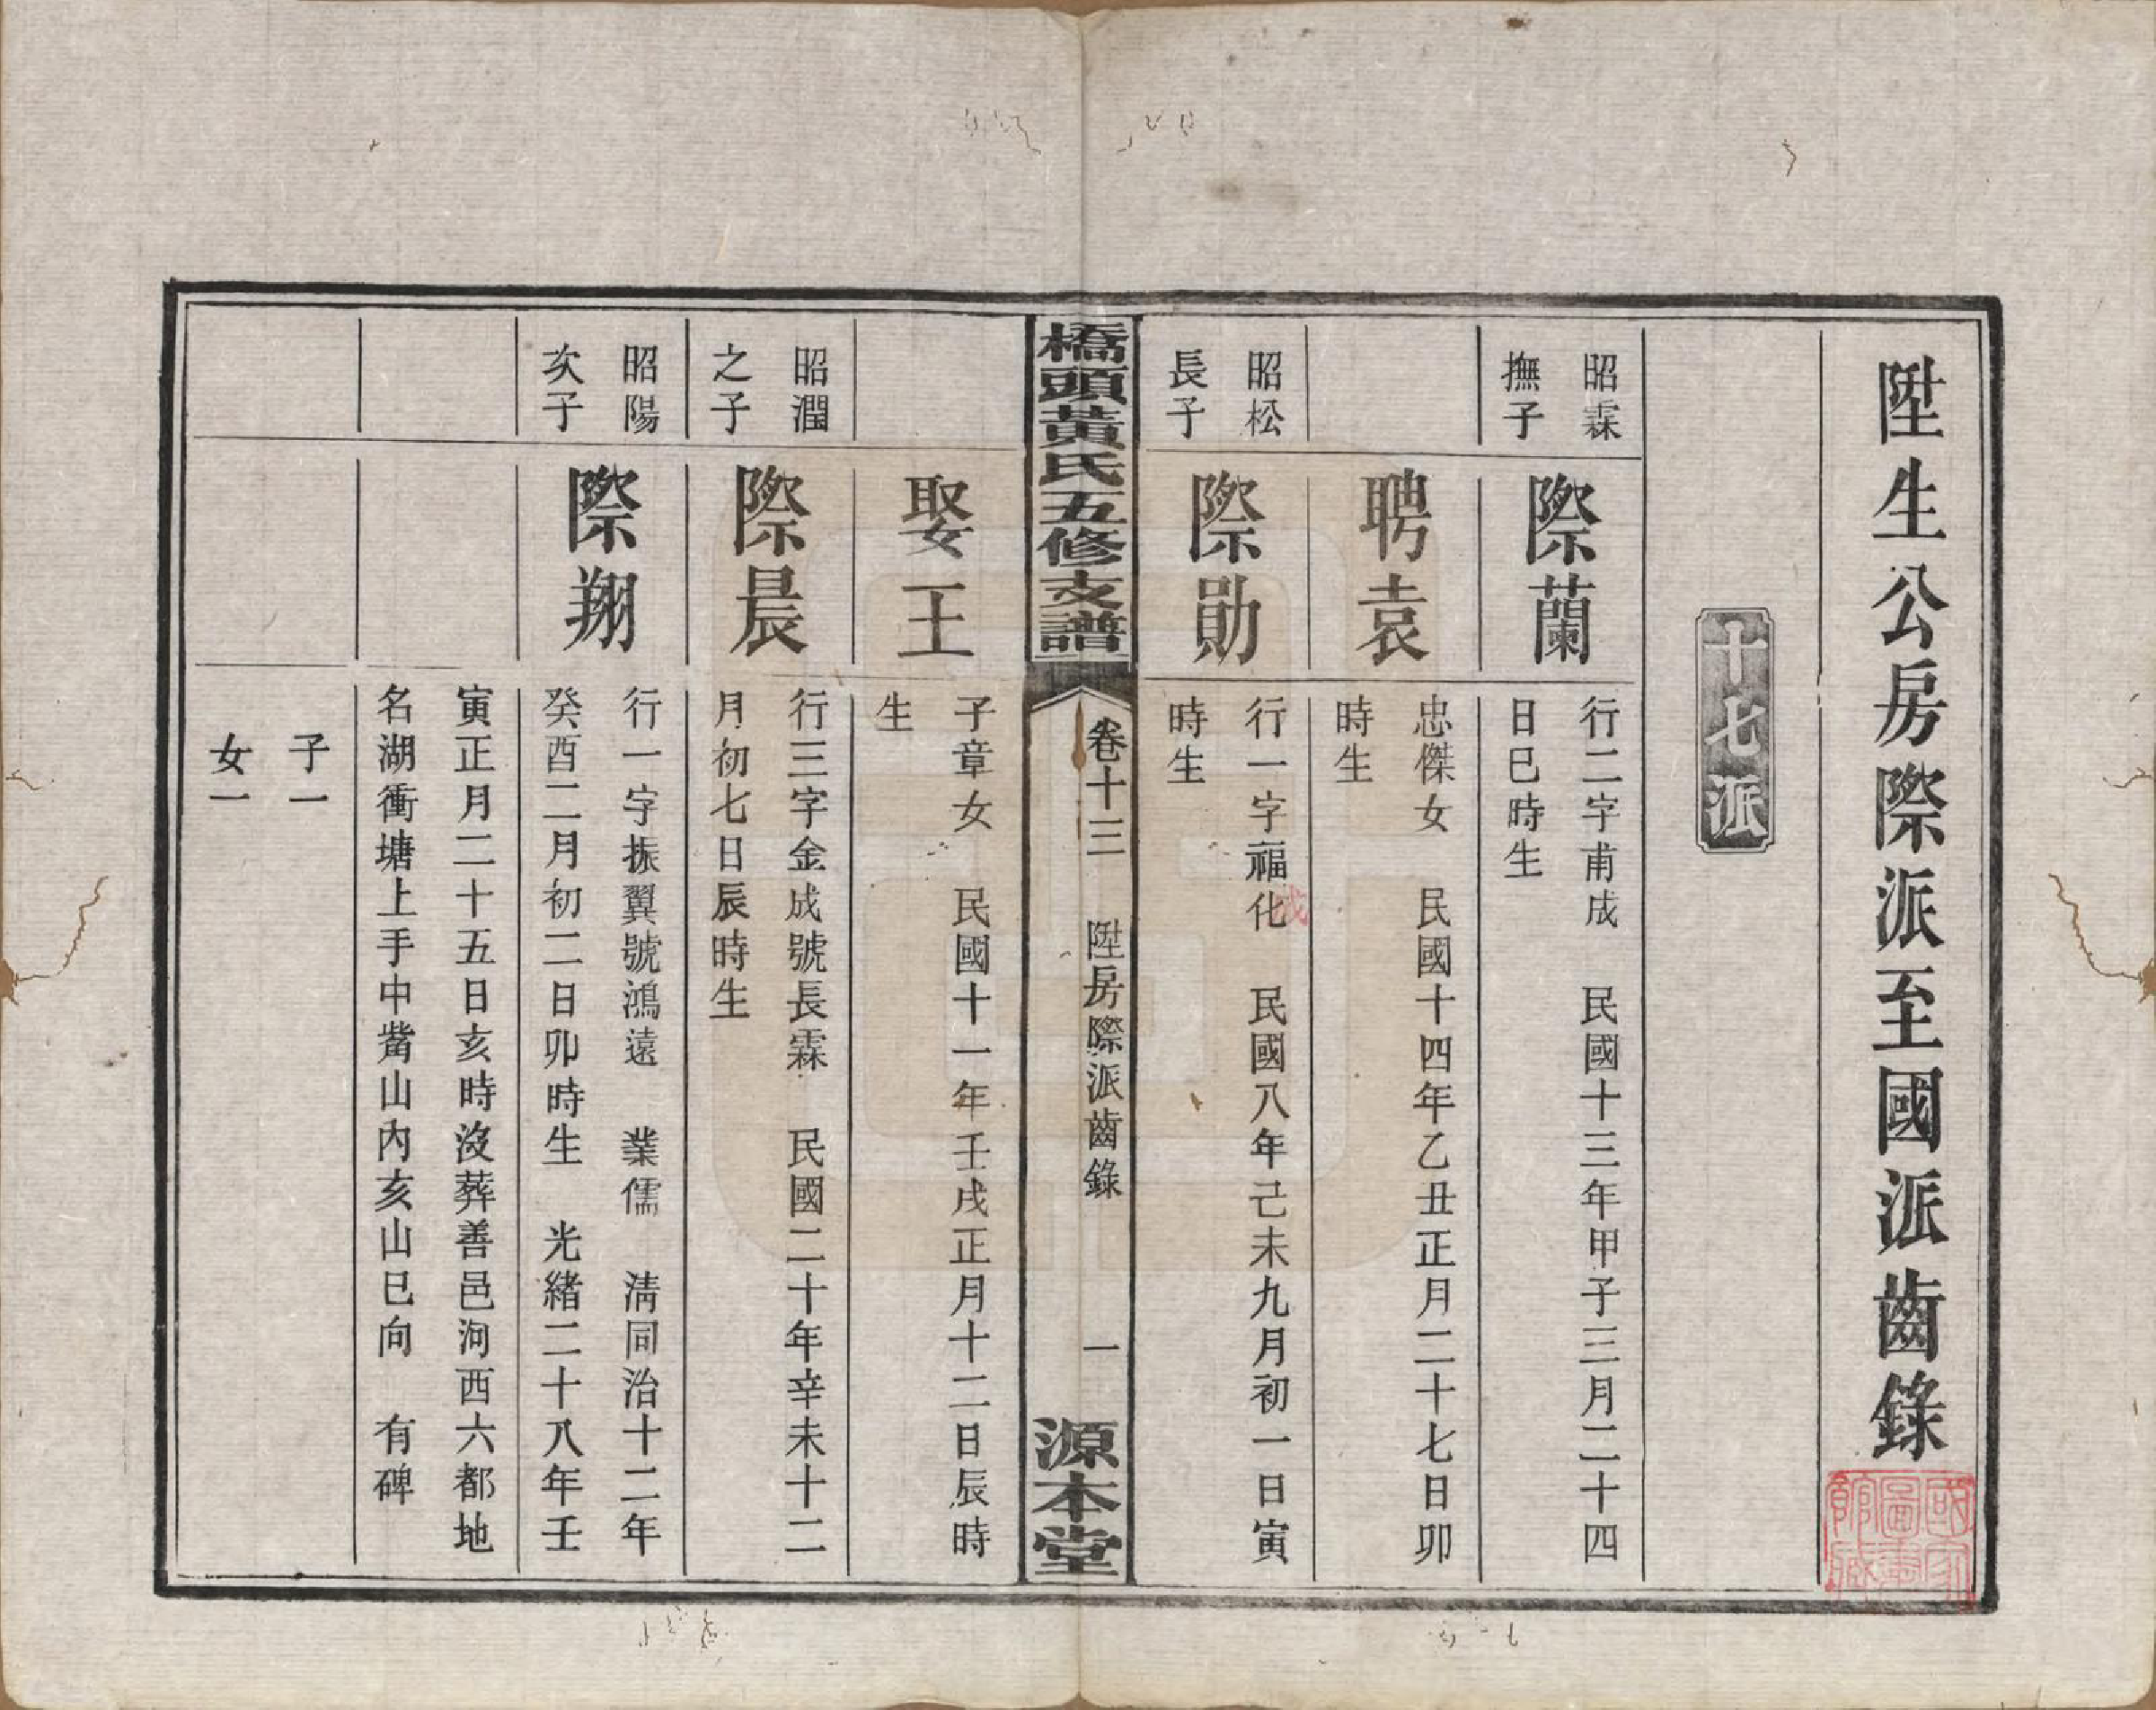 陞生公房際派至國派齒錄
國家圖書館藏
十七派
昭霖
撫子
際蘭
行二字甫成　民國十三年甲子三月二十四
日巳時生
聘袁
忠傑女　民國十四年乙丑正月二十七日卯
時生
昭松
長子
際勛
行一字福化　民國八年己未九月初一日寅
成
時生
橋頭黃氏五修支譜
卷十三　陞房際派齒錄　一
源本堂
娶王
子章女　民國十一年壬戌正月十二日辰時
生
昭潤
之子
際晨
行三字金成號長霖　民國二十年辛未十二
月初七日辰時生
昭陽
次子
際翔
行一字振翼號鴻遠　業儒　清同治十二年
癸酉二月初二日卯時生　光緒二十八年壬
寅正月二十五日亥時沒葬善邑河西六都地
名湖衝塘上手中嵜山內亥山巳向　有碑
子一
女一